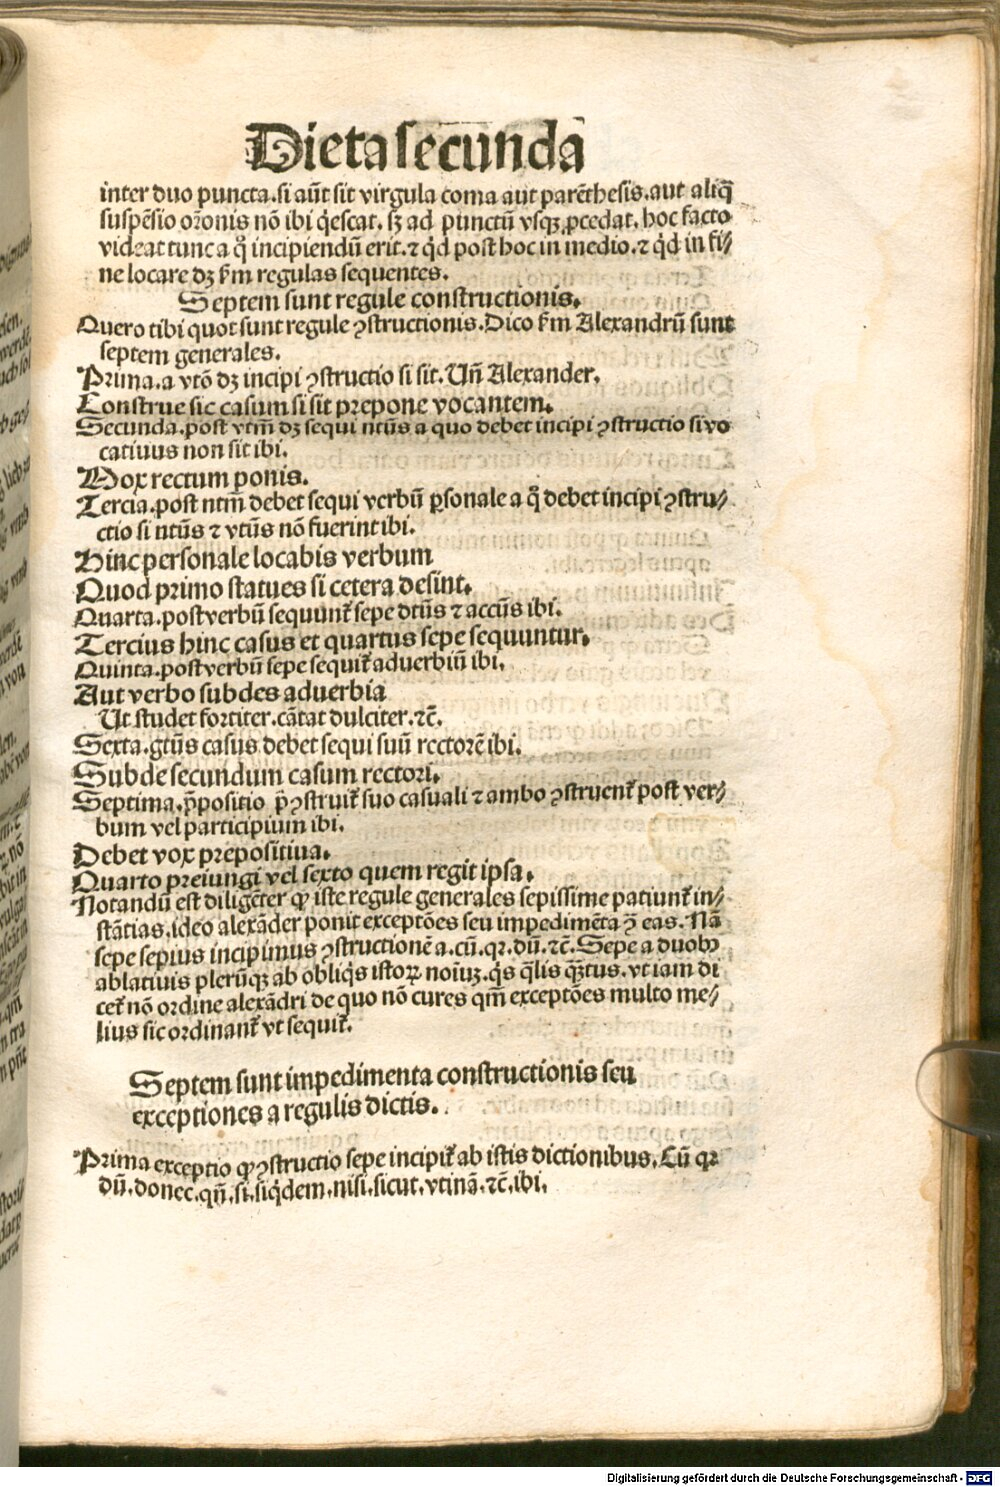 Dieta secunda
inter duo puncta. si aūt sit virgula coma aut parēthesis. aut aliq̄
suspēsio or̄onis nō ibi q̇escat. sꝫ ad punctū vsqꝫ ꝓcedat. hoc facto
videat tunc a q̊ incipiendū erit. ⁊ qd̓ post hoc in medio. ⁊ qd̓ in fi⸗
ne locare dꝫ ẜm regulas sequentes.
Septem sunt regule constructionis.
Quero tibi quot sunt regule ꝯstructionis. Dico ẜm Alexandrū sunt
septem generales.
Prima. a vtō dꝫ incipi ꝯstructio si sit. Un̄ Alexander.
Construe sic casum si sit prepone vocantem.
Secunda. post vtm̄ dꝫ sequi ntūs a quo debet incipi ꝯstructio si vo
catiuus non sit ibi.
Mox rectum ponis.
Tercia. post ntm̄ debet sequi verbū ꝑsonale a q̊ debet incipi ꝯstru⸗
ctio si ntūs ⁊ vtūs nō fuerint ibi.
Hinc personale locabis verbum
Quod primo statues si cetera desint.
Quarta. post verbū sequunt᷑ sepe dtūs ⁊ accūs ibi.
Tercius hinc casus et quartus sepe sequuntur.
Quinta. post verbū sepe sequit᷑ aduerbiū ibi.
Aut verbo subdes aduerbia
Ut studet fortiter. cātat dulciter. ⁊c̄.
Sexta. gtūs casus debet sequi suū rectorē ibi.
Subde secundum casum rectori.
Septima. p̄positio p̄ꝯstruit᷑ suo casuali ⁊ ambo ꝯstruent᷑ post ver⸗
bum vel participium ibi.
Debet vox prepositiua.
Quarto preiungi vel sexto quem regit ipsa.
Notandū est diligēter ꝙ iste regule generales sepissime patiunt᷑ in⸗
stātias. ideo alexāder ponit exceptōes seu impedimēta ꝯ̄ eas. Nā
sepe sepius incipimus ꝯstructionē a. cū. qꝛ. dū. ⁊c̄. Sepe a duobꝫ
ablatiuis plerūqꝫ ab obliq̇s istoꝝ noīuꝫ. q̇s q̄lis q̄ꝫtus. vt iam di
cet᷑ nō ordine alexādri de quo nō cures qm̄ exceptōes multo me⸗
lius sic ordinant᷑ vt sequit᷑.
Septem sunt impedimenta constructionis seu
exceptiones a regulis dictis.
Prima exceptio ꝙ ꝯstructio sepe incipit᷑ ab istis dictionibus. Cū qꝛ
dū. donec. qn̄. si. siq̇dem. nisi. sicut. vtinā. ⁊c̄. ibi.
Digitalisierung gefördert durch die Deutsche Forschungsgemeinschaft - DFG